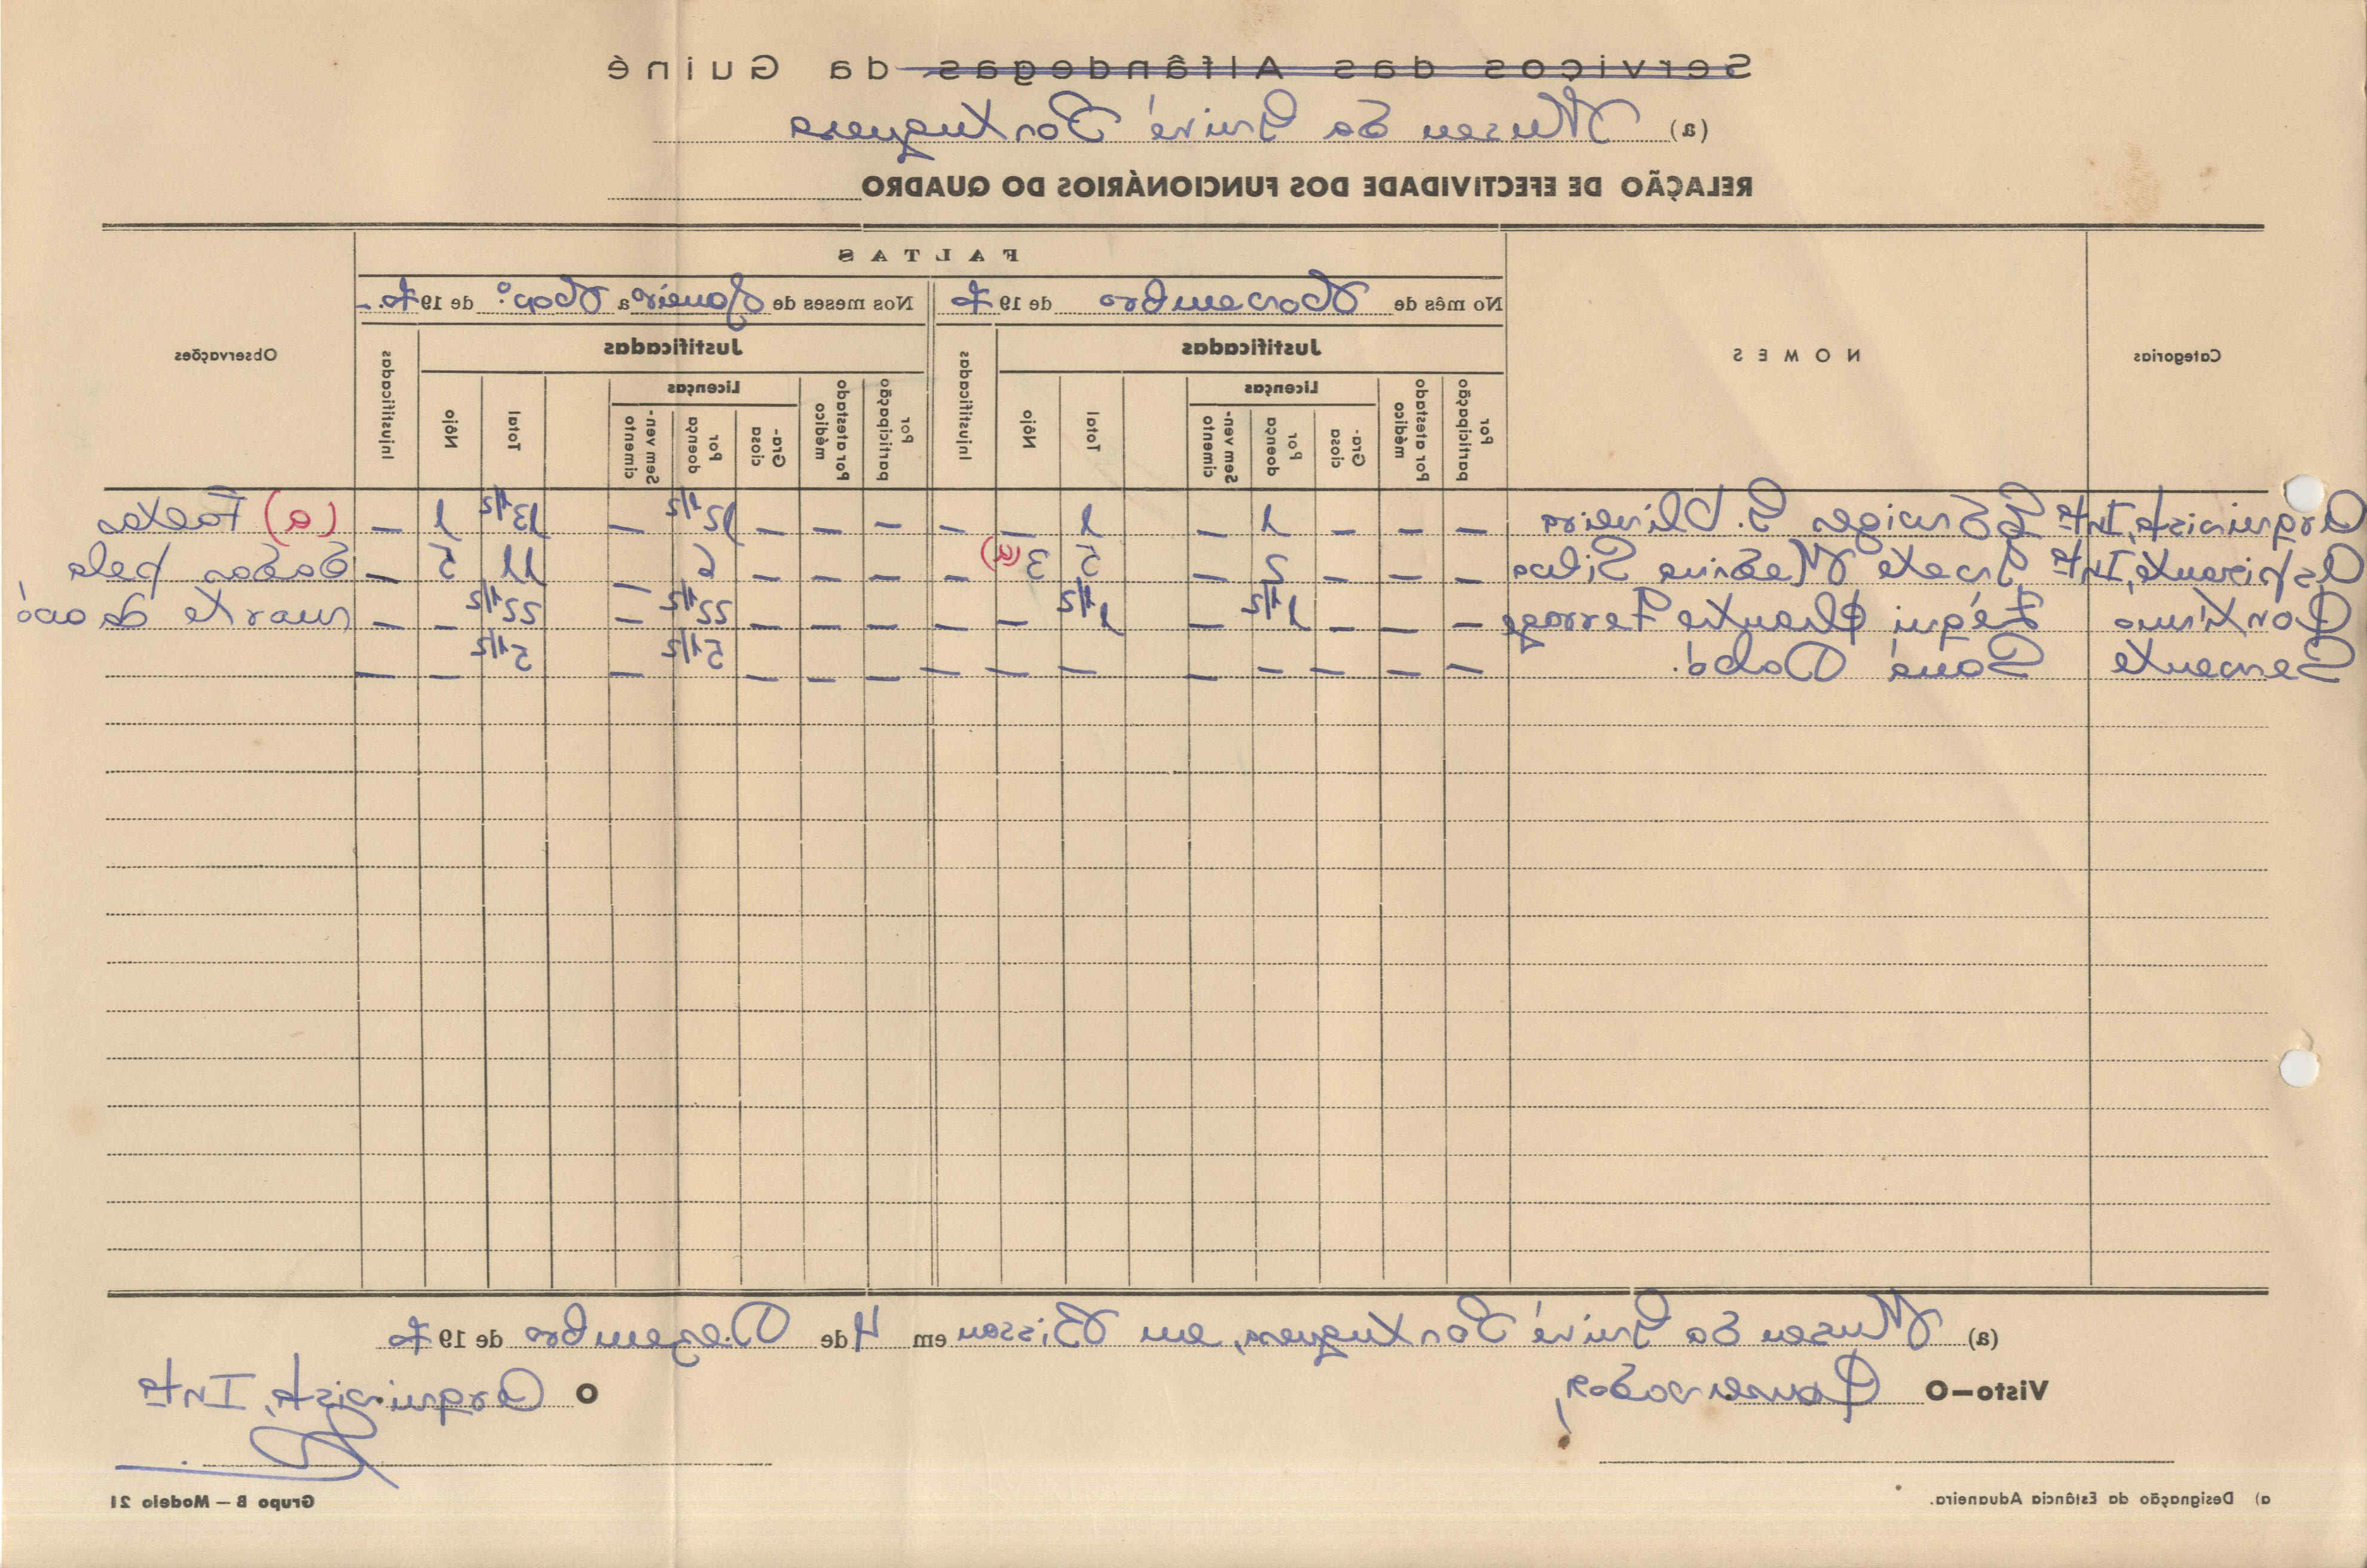 Serviços das Alfândegas da Guiné
(a) Museu da Guiné Portuguesa
RELAÇÃO DE EFECTIVIDADE DOS FUNCIONÁRIOS DO QUADRO
Categorias
NOMES
FALTAS
No mês de Novembro de 197
Nos meses de Janeiro a Nov.º de 197.-
Justificadas
Por participação
Por atestado médico
Licenças
Gra- ciosa
Por doença
Sem ven- cimento
Total
Nôjo
Injustificadas
Justificadas
Por participação
Por atestado médico
Licenças
Gra- ciosa
Por doença
Sem ven- cimento
Total
Nôjo
Injustificadas
Observações
Arquivista, Intª S. Oliveira — — — 1 — 1 — — — — — 12 1/2 — 13 1/2 1 — (a) Faltas
Aspirante, Intª Ivete Medina Silva — — — 2 — 5 3 (a) — — — — 6 — 11 5 — dadas pela
Contínuo Duarte Ferrage — — — 1 1/2 — 1 1/2 — — — — — 22 1/2 — 22 1/2 — — morte do avô
Servente Soná Dabó. — — — — — — — — — — — 5 1/2 — 5 1/2 — —
(a) Museu da Guiné Portuguesa, em Bissau em 4 de Dezembro de 197
Visto—O Conservador,
O Arquivista, Intª
a) Designação da Estância Aduaneira.
Grupo B — Modelo 21